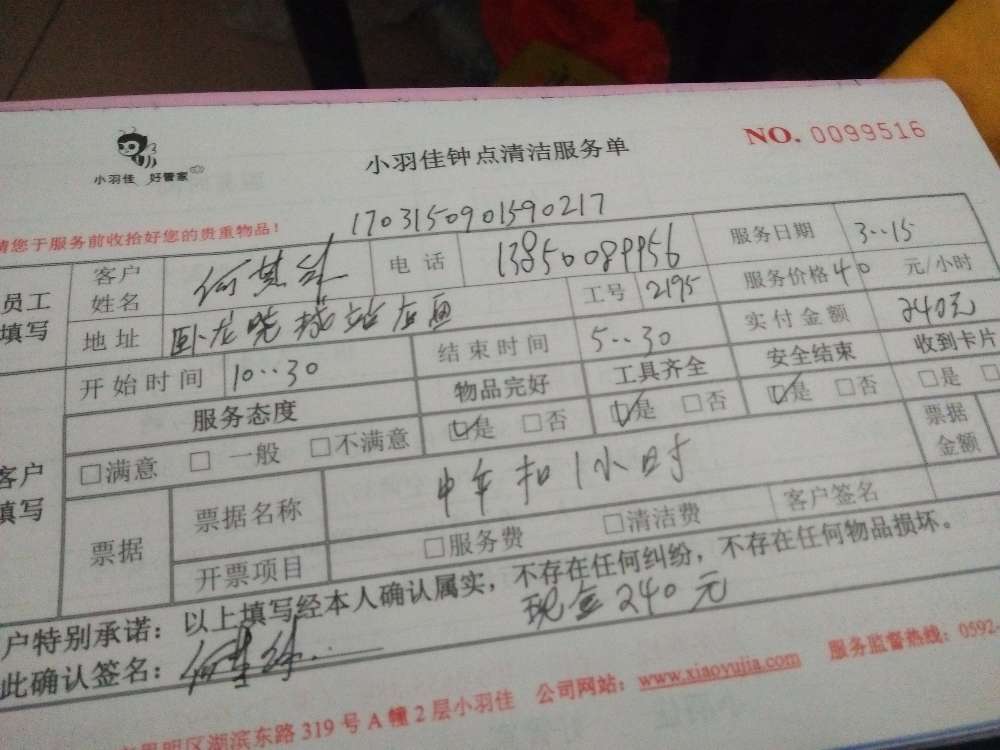 小羽佳 好管家
小羽佳钟点清洁服务单
NO. 0099516
请您于服务前收拾好您的贵重物品!
1703150901590217
员工填写
客户姓名 何其 电话 13850089956 服务日期 3..15
地址 卧龙晓城站后面 工号 2195 服务价格 40 元/小时
开始时间 10..30 结束时间 5..30 实付金额 240元
服务态度 物品完好 工具齐全 安全结束 收到卡片
客户填写
□满意 □一般 □不满意 ☑是 □否 ☑是 □否 ☑是 □否 □是 □
票据 票据名称 中午扣1小时 票据金额
开票项目 □服务费 □清洁费 客户签名
户特别承诺:以上填写经本人确认属实,不存在任何纠纷,不存在任何物品损坏。
此确认签名: 现金240元
明区湖滨东路319号A幢2层小羽佳 公司网站:www.xiaoyujia.com 服务监督热线:0592-